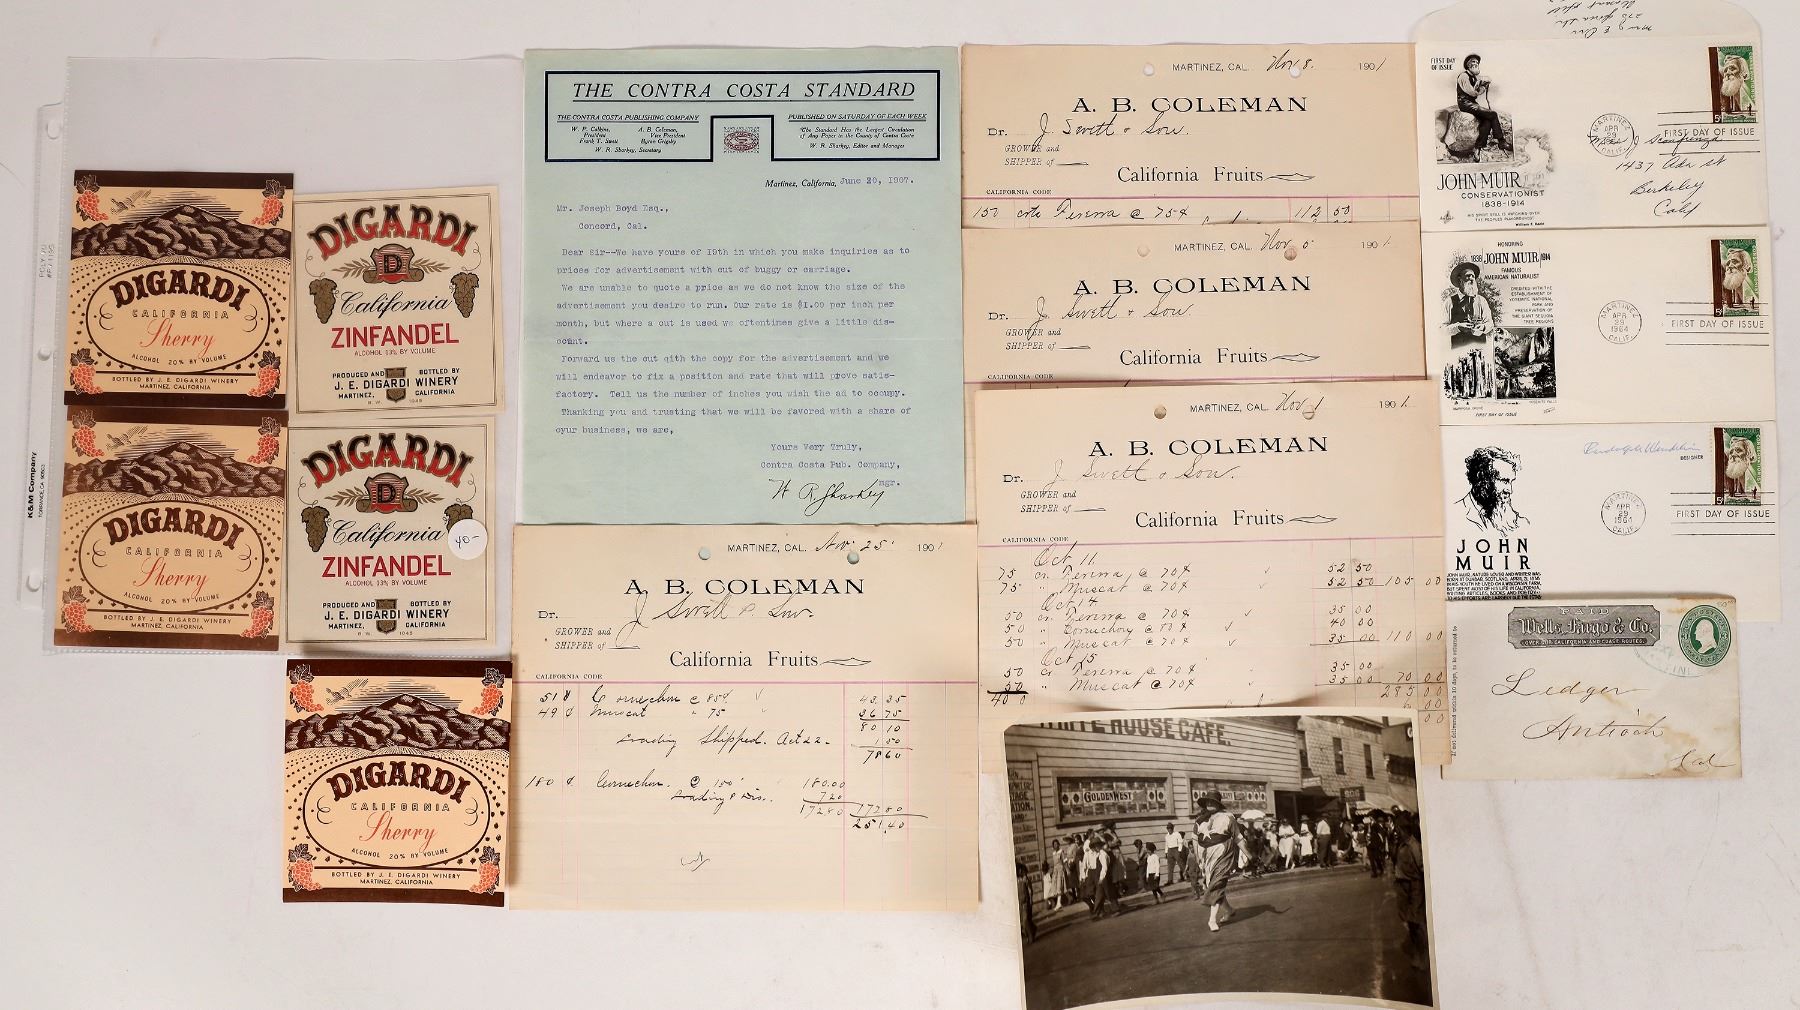 DIGARDI
CALIFORNIA
Sherry
ALCOHOL 20% BY VOLUME
BOTTLED BY J. E. DIGARDI WINERY
MARTINEZ, CALIFORNIA
DIGARDI
D
California
ZINFANDEL
ALCOHOL 13% BY VOLUME
PRODUCED AND BOTTLED BY
J. E. DIGARDI WINERY
MARTINEZ, CALIFORNIA
DIGARDI
CALIFORNIA
Sherry
ALCOHOL 20% BY VOLUME
BOTTLED BY J. E. DIGARDI WINERY
MARTINEZ, CALIFORNIA
DIGARDI
D
California
ZINFANDEL
ALCOHOL 13% BY VOLUME
PRODUCED AND BOTTLED BY
J. E. DIGARDI WINERY
MARTINEZ, CALIFORNIA
40-
DIGARDI
CALIFORNIA
Sherry
ALCOHOL 20% BY VOLUME
BOTTLED BY J. E. DIGARDI WINERY
MARTINEZ, CALIFORNIA
K&M Company
THE CONTRA COSTA STANDARD
THE CONTRA COSTA PUBLISHING COMPANY
W. P. Calkins, President
A. B. Coleman, Vice President
Frank T. Swett Byron Grigsby
W. R. Sharkey, Secretary
PUBLISHED ON SATURDAY OF EACH WEEK
The Standard Has the Largest Circulation
of Any Paper in the County of Contra Costa
W. R. Sharkey, Editor and Manager
Martinez, California, June 20, 1907.
Mr. Joseph Boyd Esq.,
Concord, Cal.
Dear Sir--We have yours of 19th in which you make inquiries as to
prices for advertisement with cut of buggy or carriage.
We are unable to quote a price as we do not know the size of the
advertisement you desire to run. Our rate is $1.00 per inch per
month, but where a cut is used we oftentimes give a little dis-
count.
Forward us the cut qith the copy for the advertisement and we
will endeavor to fix a position and rate that will prove satis-
factory. Tell us the number of inches you wish the ad to occupy.
Thanking you and trusting that we will be favored with a share of
oyur business, we are,
Yours Very Truly,
Contra Costa Pub. Company,
mgr.
W R Sharkey
MARTINEZ, CAL. Nov 25 1901
A. B. COLEMAN
Dr. J Swett & Son
GROWER and
SHIPPER of
California Fruits
CALIFORNIA CODE
51 Cornichon @ 85¢ 43.35
49 Muscat " 75 36 75
80 10
Loading Shipped. Oct 22. 1 50
78 60
180 Cornichon @ 100 180.00
Loading & Dis. 7 20
172 80 172 80
251.40
MARTINEZ, CAL. Nov 8. 1901
A. B. COLEMAN
Dr. J. Swett & Son.
GROWER and
SHIPPER of
California Fruits
CALIFORNIA CODE
150 crts Ferrera @ 75¢ 112 50
MARTINEZ, CAL. Nov 5 1901
A. B. COLEMAN
Dr. J. Swett & Son.
GROWER and
SHIPPER of
California Fruits
CALIFORNIA CODE
MARTINEZ, CAL. Nov 1 1901.
A. B. COLEMAN
Dr. J Swett & Son.
GROWER and
SHIPPER of
California Fruits
CALIFORNIA CODE
Oct 11
75 cr Ferrera @ 70¢ 52 50
75 " Muscat @ 70¢ 52 50 105 00
Oct 14
50 cr Ferrera @ 70¢ 35 00
50 " Cornichon @ 40 00
50 " Muscat @ 70¢ 35 00 110 00
Oct 15
50 cr Ferrera @ 70¢ 35 00
50 " Muscat @ 70¢ 35 00 70 00
400 285 00
WHITE HOUSE CAFE.
GOLDEN WEST
FIRST DAY
OF ISSUE
JOHN MUIR
CONSERVATIONIST
1838-1914
MARTINEZ
APR
29
CALIF.
FIRST DAY OF ISSUE
1437 Ada St
Berkeley
Calif
HONORING
1838 JOHN MUIR 1914
FAMOUS
AMERICAN NATURALIST
CREDITED WITH THE
ESTABLISHMENT OF
YOSEMITE NATIONAL
PARK AND
PRESERVATION OF
THE GIANT SEQUOIA
TREE REGIONS
FIRST DAY OF ISSUE
MARTINEZ
APR
29
1964
CALIF.
FIRST DAY OF ISSUE
JOHN
MUIR
DESIGNER
MARTINEZ
APR
29
1964
CALIF.
FIRST DAY OF ISSUE
PAID
Wells, Fargo & Co.
OVER OUR CALIFORNIA AND COAST ROUTES.
Ledger
Antioch
Cal